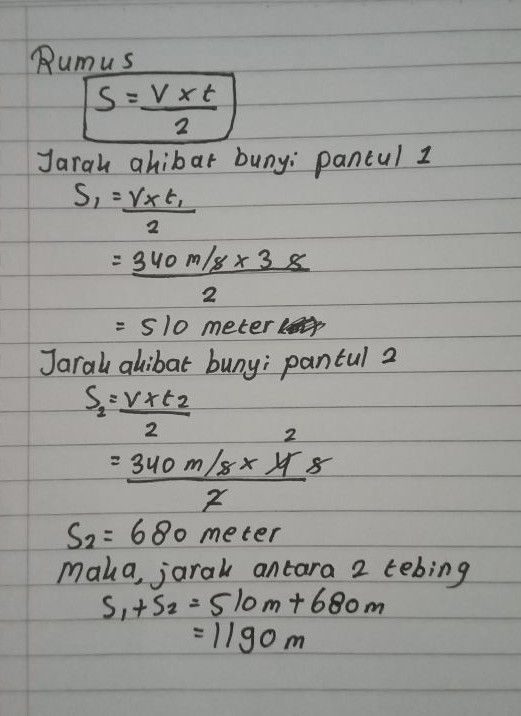 Rumus
S = V x t
2
Jarak akibat bunyi pantul 1
S₁ = V x t₁
2
= 340 m/s x 3 s
2
= 510 meter
Jarak akibat bunyi pantul 2
S₂ = V x t2
2
2
= 340 m/s x 4 s
2
S2 = 680 meter
Maka, jarak antara 2 tebing
S₁ + S₂ = 510 m + 680 m
= 1190 m